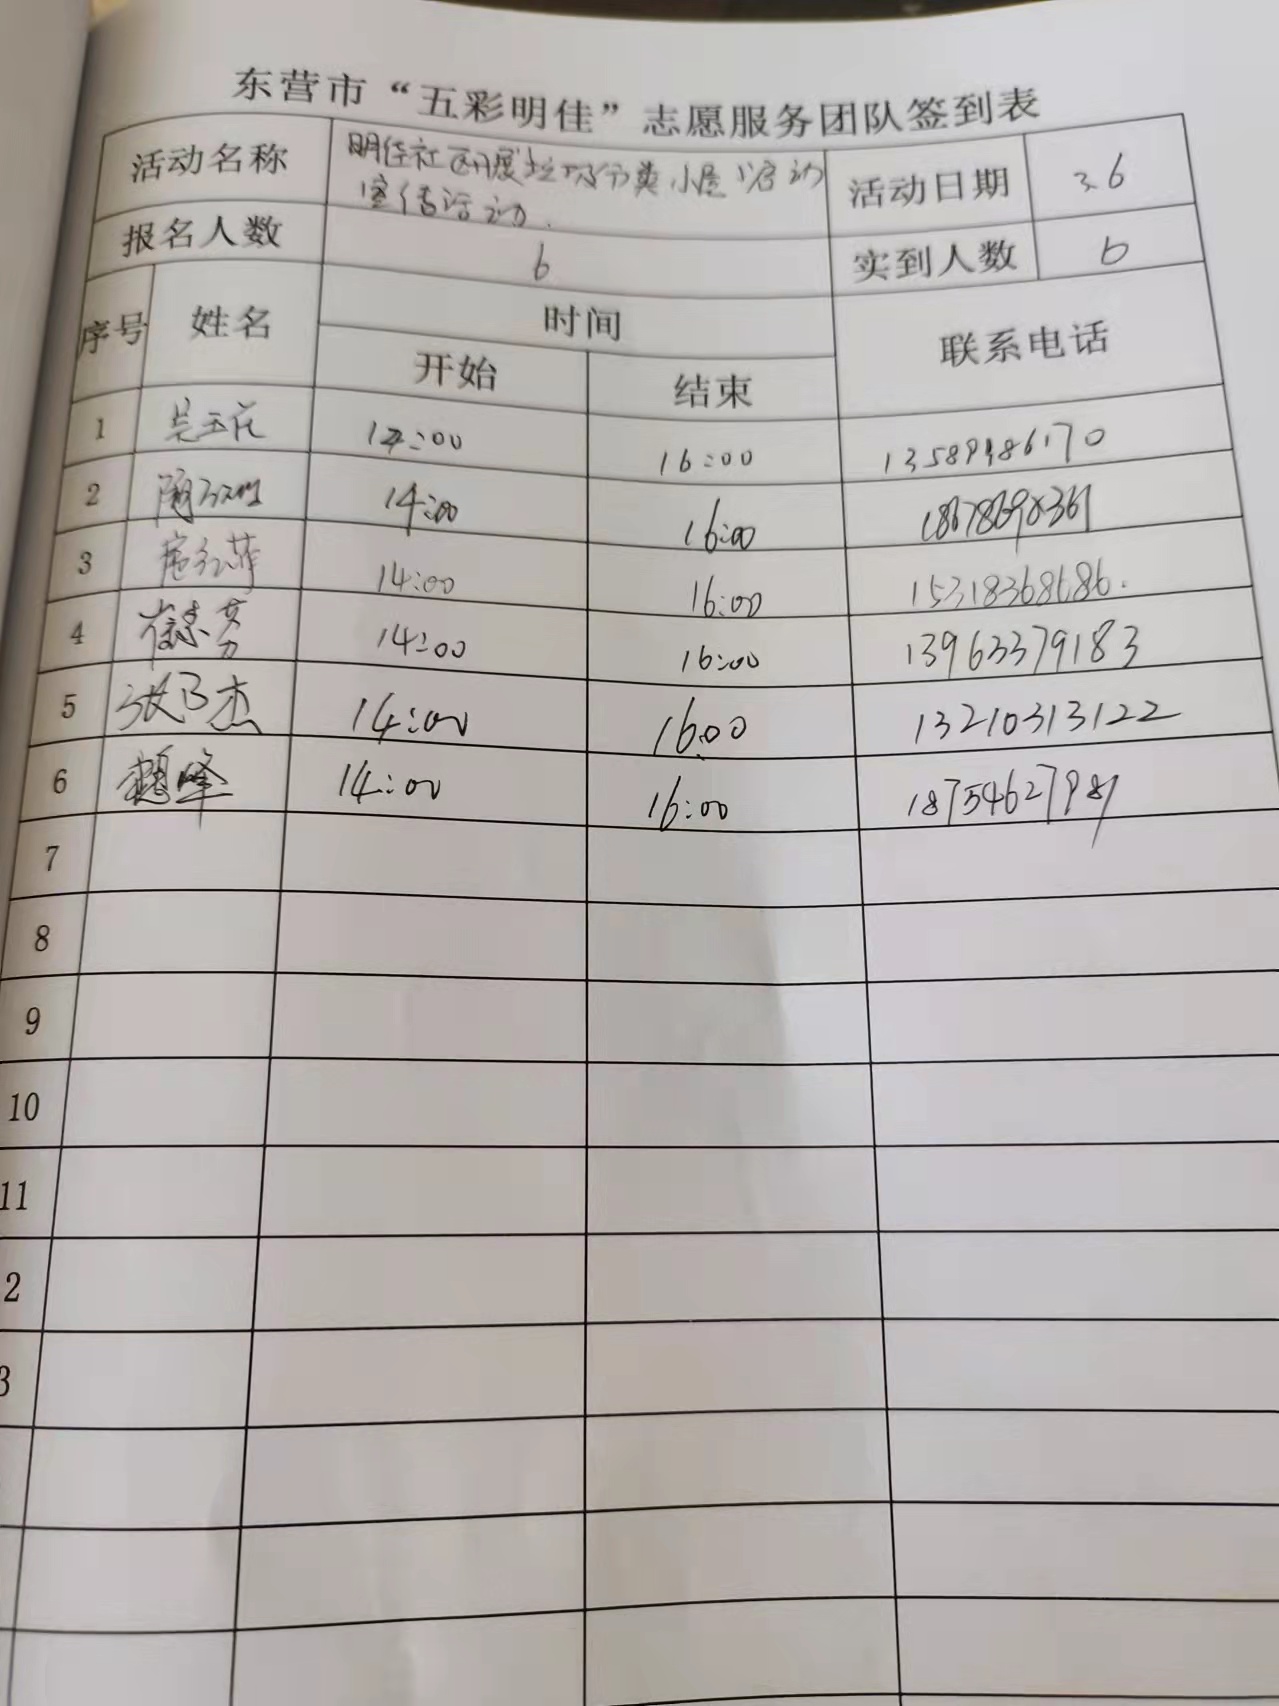 东营市“五彩明佳”志愿服务团队签到表
活动名称 明佳社区开展垃圾分类小屋启动 活动日期 3.6
宣传活动.
报名人数 6 实到人数 6
序号 姓名 时间 联系电话
开始 结束
1 吴玉花 14:00 16:00
2 14:00 16:00
3 14:00 16:00 15318368686.
4 崔素芳 14:00 16:00 13963379183
5 张卫杰 14:00 16:00 13210313122
6 14:00 16:00 18754627981
7
8
9
10
11
2
3